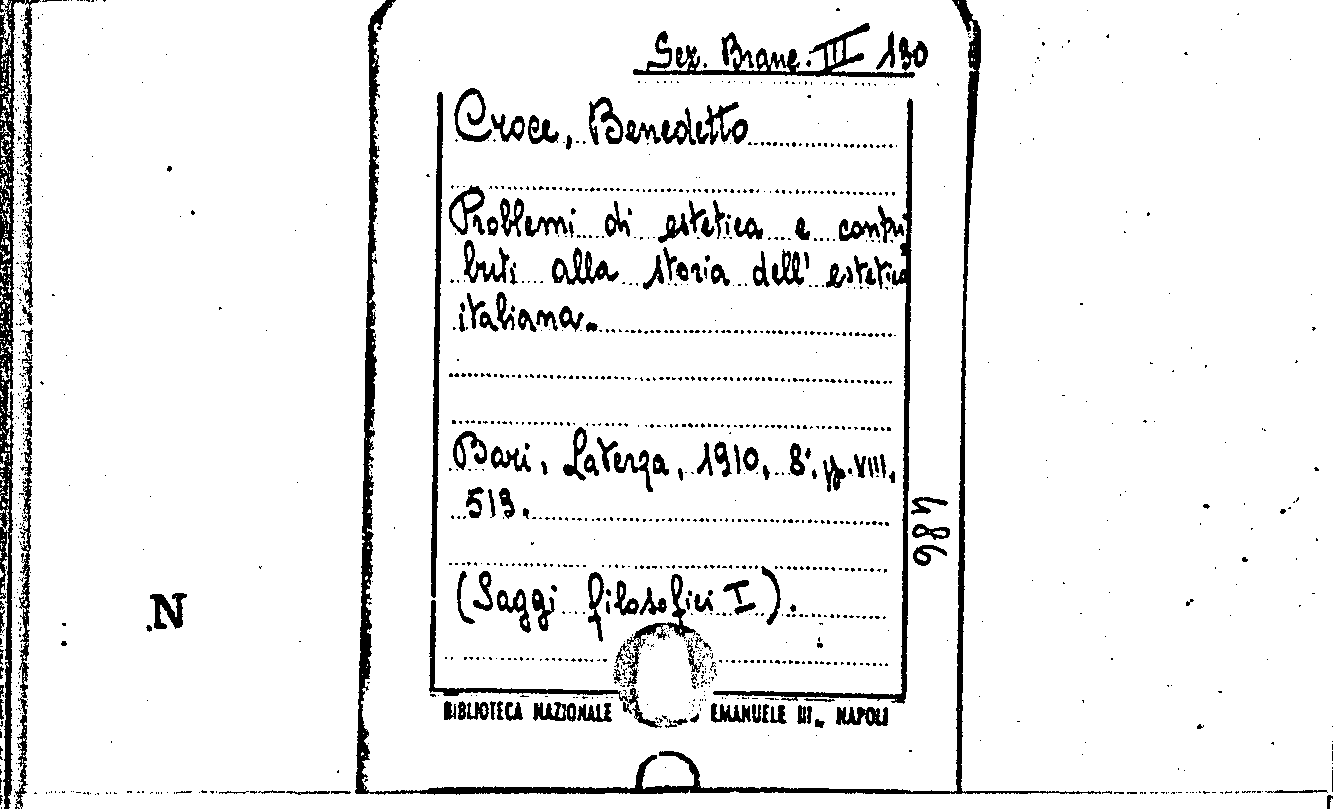 Sez. Branc. III 130
Croce, Benedetto
Problemi di estetica e contri
buti alla storia dell' estetica
italiana.
Bari, Laterza, 1910, 8°, pp. VIII,
513.
(Saggi filosofici I).
486
N
BIBLIOTECA NAZIONALE EMANUELE III - NAPOLI